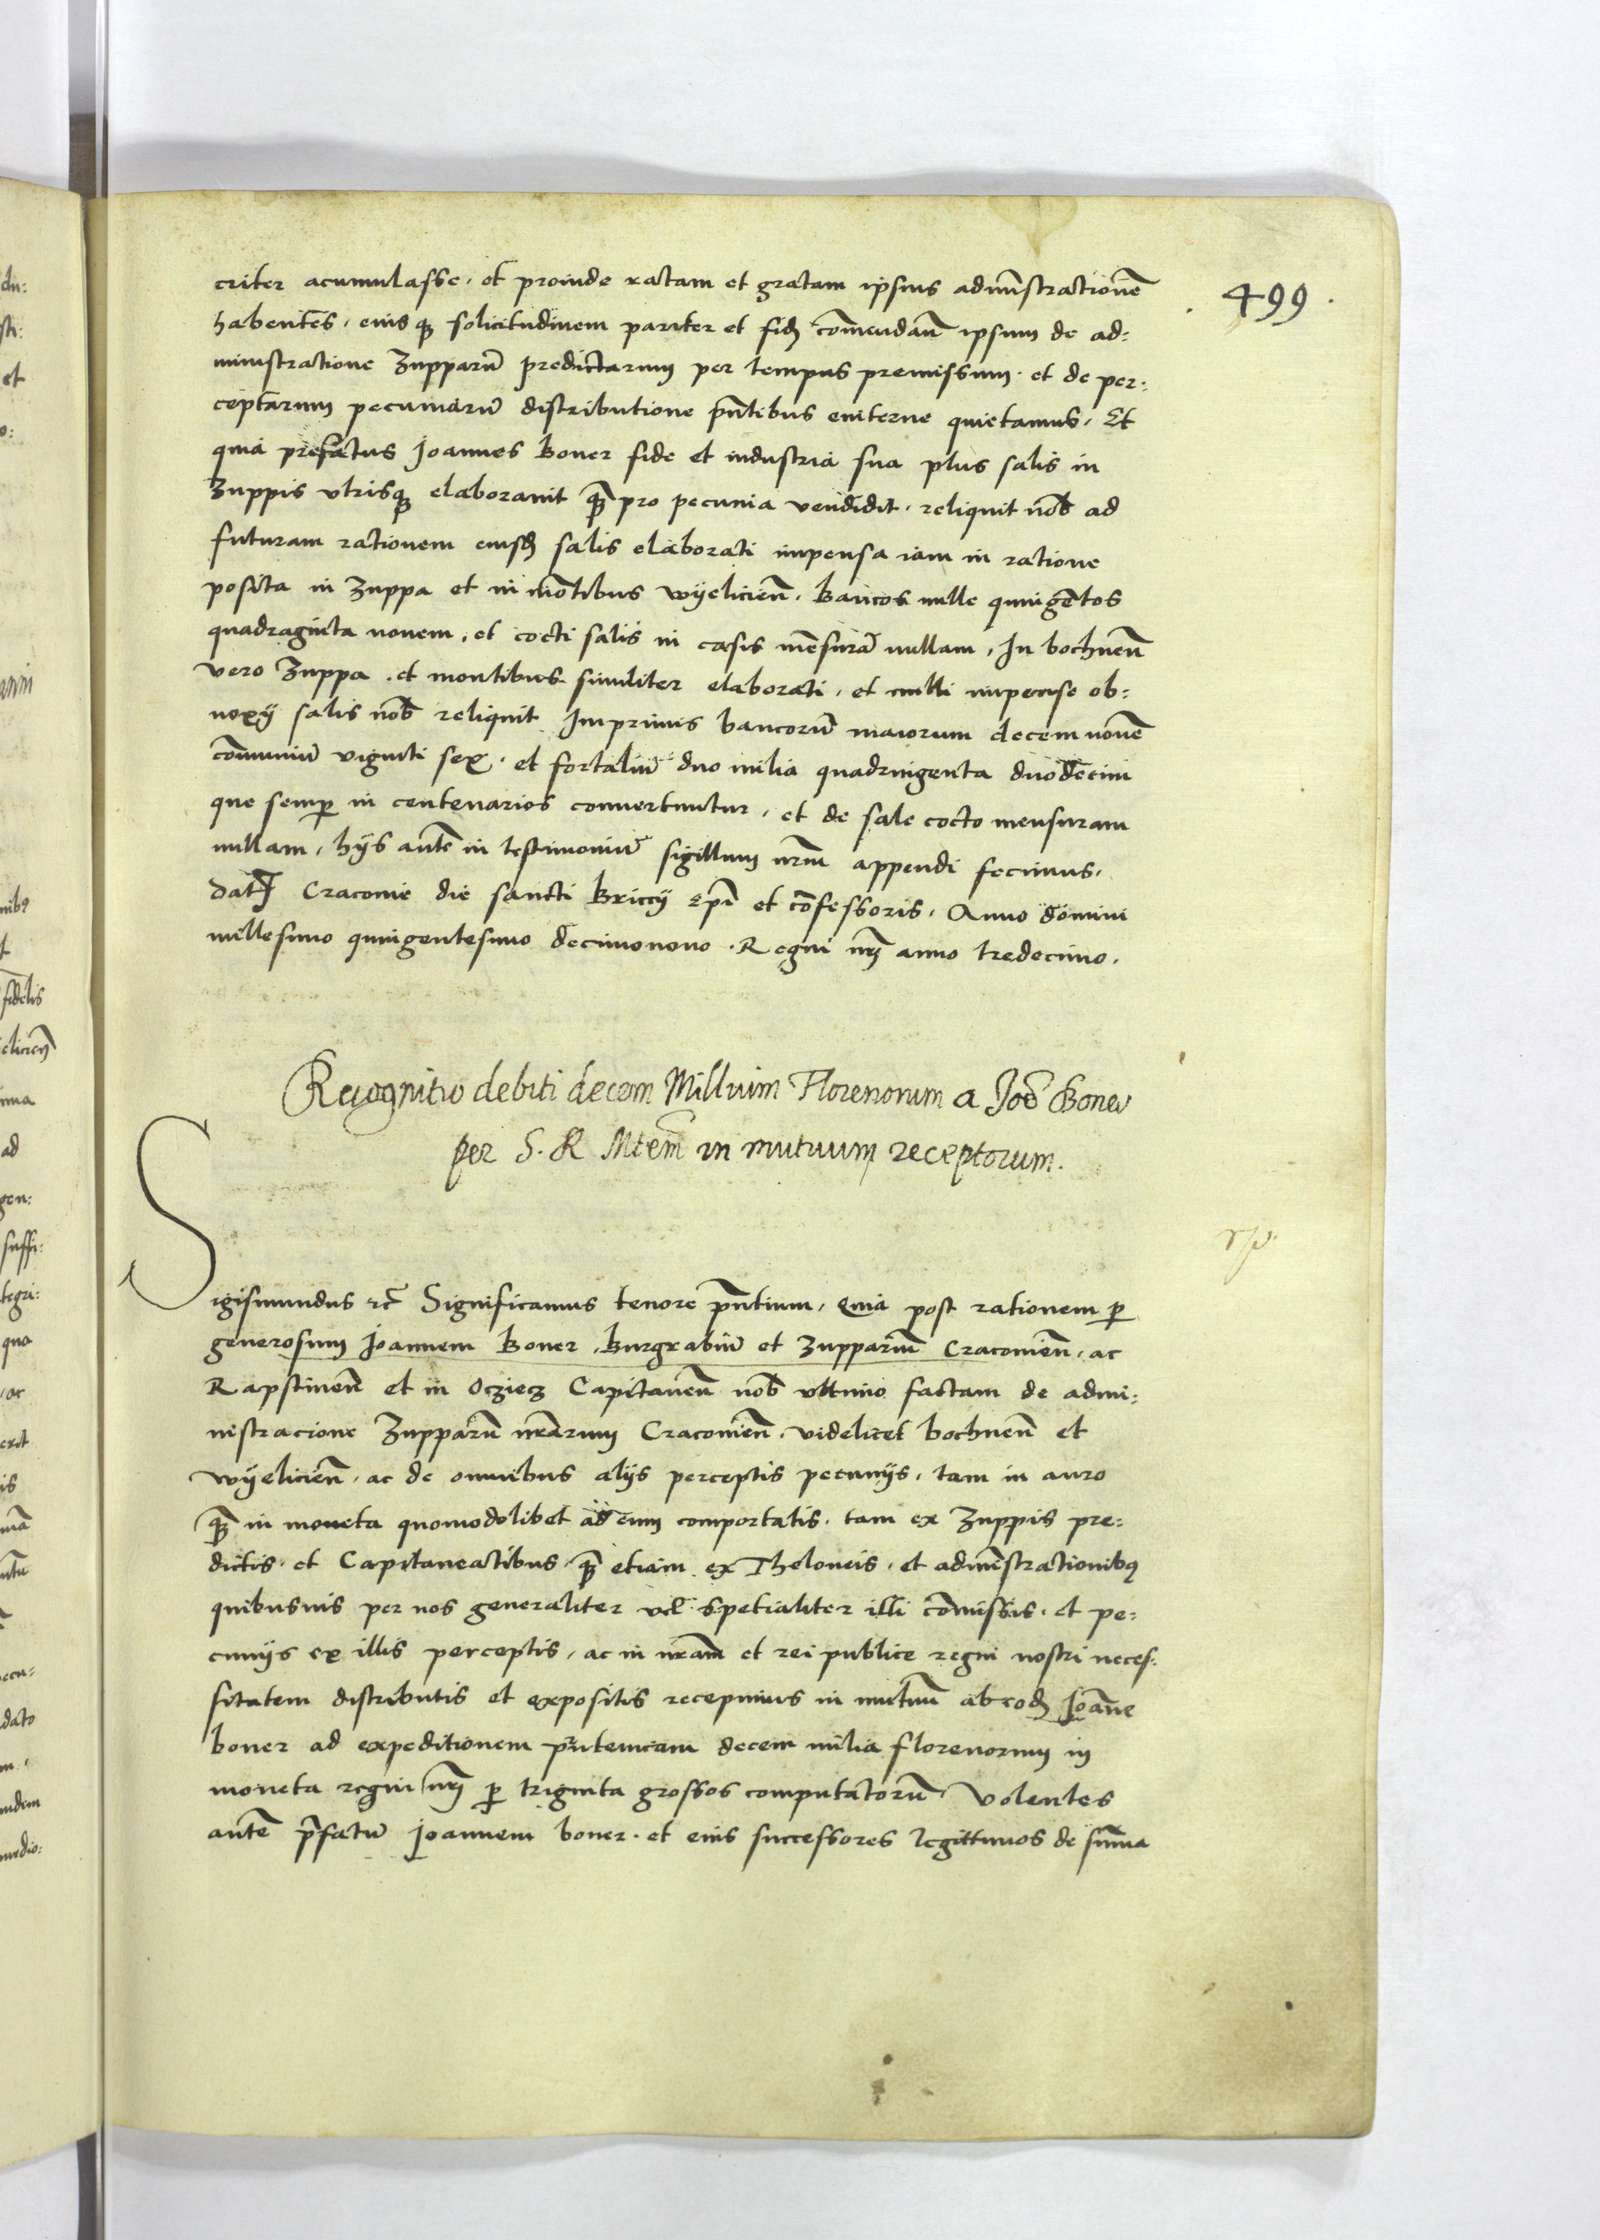 499.
criter acumulasse. et proinde ratam et gratam ipsius administrationē
habentes. eius q̨ solicitudinem pariter et fidē cōmendan̄ ipsum de ad:
ministratione Zupparū predictarum per tempus premissum. et de per:
ceptarum pecuniarū distributione pn̄tibus eviterne quietamus. Et
quia prefatus Joannes Boner fide et industria sua plus salis in
Zuppis utrisq̨ elaboravit q̄ pro pecunia vendidit. reliquit nob̄ ad
futuram rationem eiusd̄ salis elaborati impensa iam in ratione
posita in Zuppa et in mōtibus wyelicien̄. Bancos mille quingentos
quadraginta novem. et cocti salis in casis mēsurā nullam. In bochnen̄
vero Zuppa. et montibus similiter elaborati. et nulli impense ob:
noxy salis nob̄ reliquit Imprimis bancorū maiorum decem novē
cōmuniū viginti sex. et fortaliū duo milia quadringenta duodecim
que semp̄ in centenarios convertuntur. et de sale cocto mensuram
nullam. hijs autē in testimoniū sigillum nr̄m appendi fecimus.
Dat̄ Cracovie die sancti Briccy Ep̄i et cōfessoris. Anno domini
millesimo quingentesimo decimonono. Regni nr̄i anno tredecimo.
Recognitio debiti decem Millium Florenorum a Joē Boner
per S. R Mtem̄ in mutuum receptorum.
Sigismundus rc̄ Significamus tenore pn̄tium. Quia post rationem p̄
generosum Joannem Boner. Burgrabiū et Zuppariū Cracovien̄. ac
Rapstinen̄ et in Ocziecz Capitaneū nob̄ ultimo factam de admi:
nistracione Zupparū nr̄arum Cracovien̄. videlicet bochnen̄ et
wyelicien̄. ac de omnibus alijs perceptis pecunijs. tam in auro
q̄ in moneta quomodolibet ad eum comportatis. tam ex Zuppis pre:
dictis. et Capitaneatibus. q̄ etiam ex Theloneis. et administrationibq
quibusvis per nos generaliter vel spetialiter illi cōmissis. et pe:
cunijs ex illis perceptis. ac in nr̄am et rei publice regni nostri neces:
sitatem distributis et expositis recepimus in mutuū ab eod̄ Joāne
boner ad expeditionem prutenicam decem milia florenorum in
moneta regni nr̄i p̄ triginta grossos computatorū. Volentes
autē p̄fatū Joannem boner. et eius successores legittimos de sum̄a